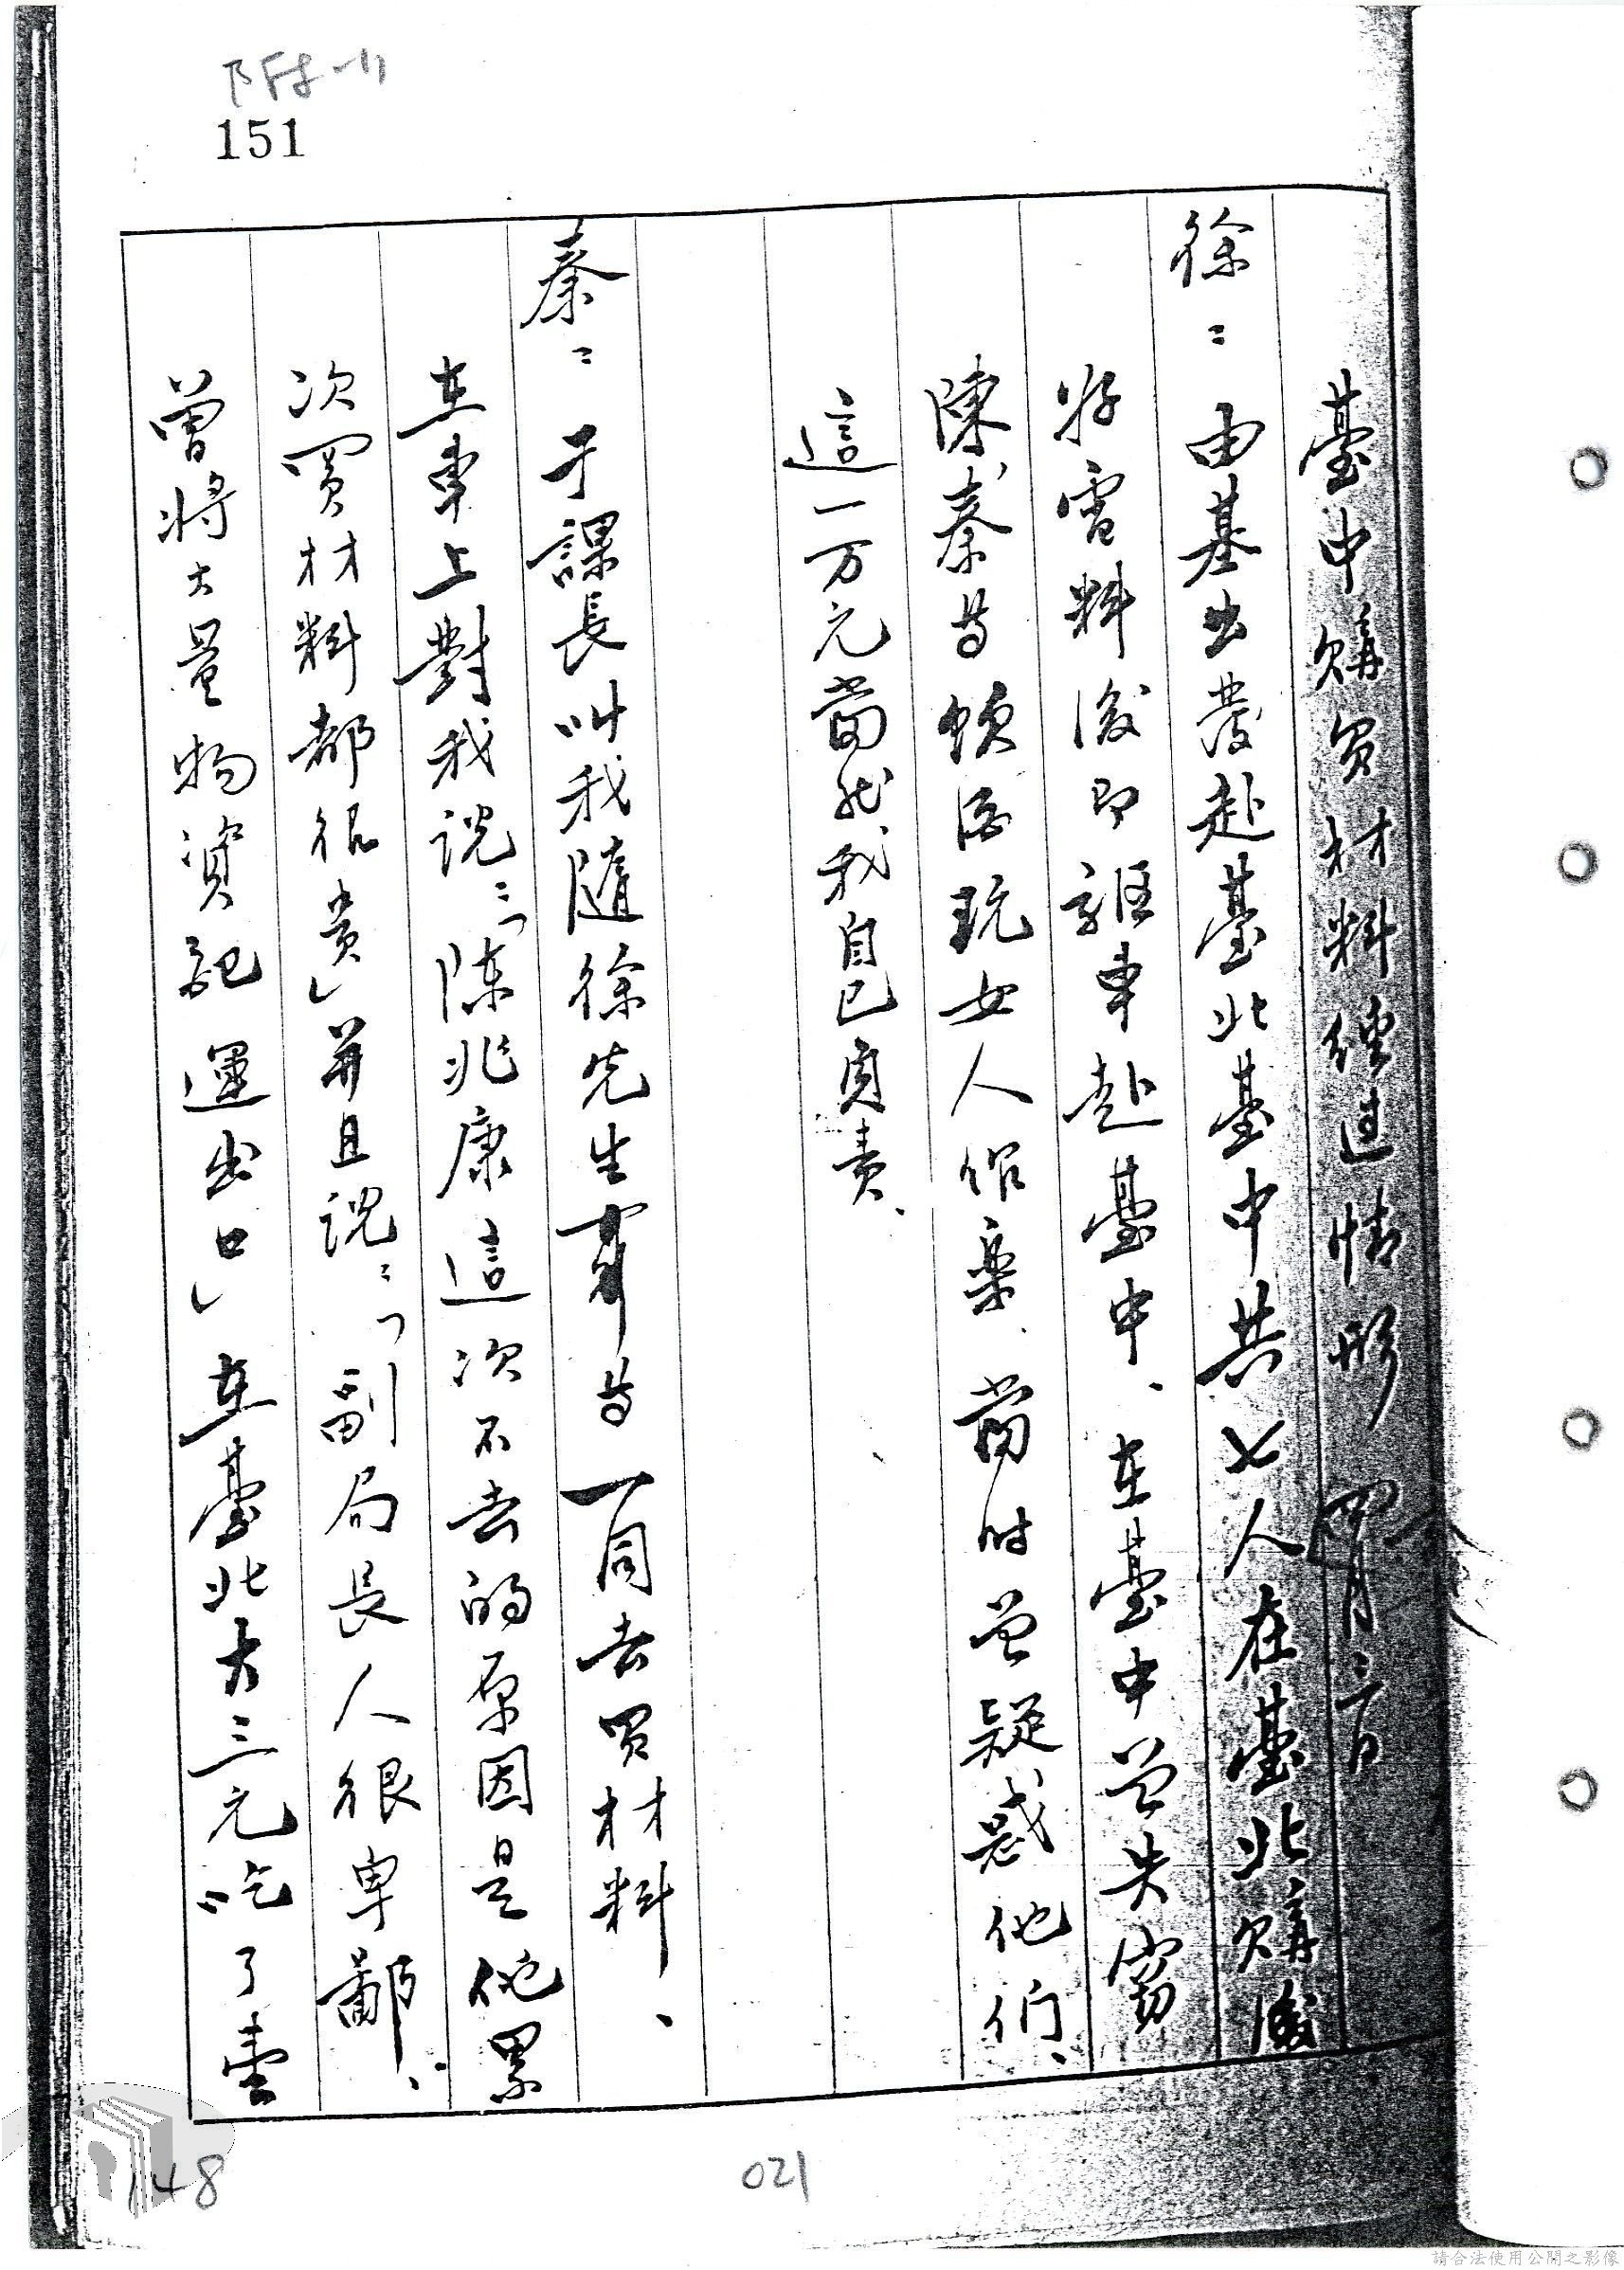 附-11
151
臺中購買材料經過情形 四月二日
徐：由基出發赴臺北臺中共七人在臺北購後
好電料後即離車赴臺中、在臺中曾失竊
陳秦与領港玩女人作樂、當時曾疑惑他們、
這一万元當然我自己負責、
秦：于課長叫我隨徐先生和与一同去買材料、
在車上對我説：「陳兆康這次不去的原因是他累
次買材料都很貴」並且説：「副局長人很卑鄙、
曾將大量物資記運出口」在臺北大三元吃了壹
148
021
請合法使用公開之影像